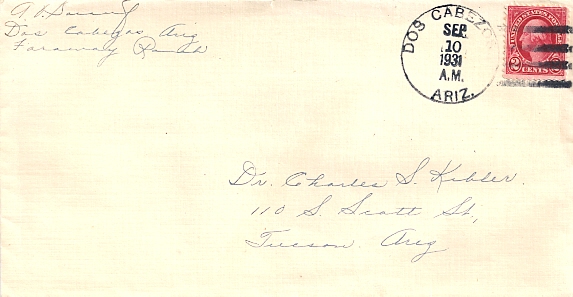 Dos Cabezas Ariz
Faraway Ranch
DOS CABEZ
SEP
10
1931
A.M.
ARIZ.
UNITED STATES POSTAGE
2 CENTS 2
Dr. Charles S. Kibler.
110 S. Scott St,
Tucson. Ariz